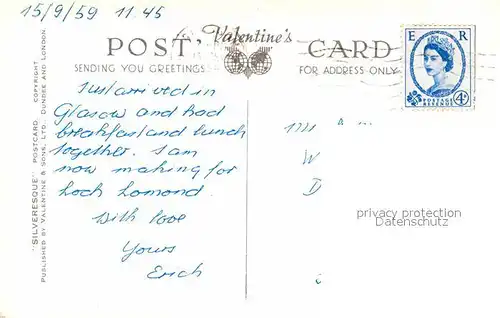 15/9/59 11.45
Valentine's
POST CARD
SENDING YOU GREETINGS
FOR ADDRESS ONLY
E R
POSTAGE
REVENUE
4D
Just arrived in
Glasow and had
breakfast and lunch
together. I am
now making for
Loch Lomond.
With love
Yours
Erich
M
W
D
privacy protection
Datenschutz
"SILVERESQUE" POSTCARD. COPYRIGHT.
PUBLISHED BY VALENTINE & SONS, LTD., DUNDEE AND LONDON